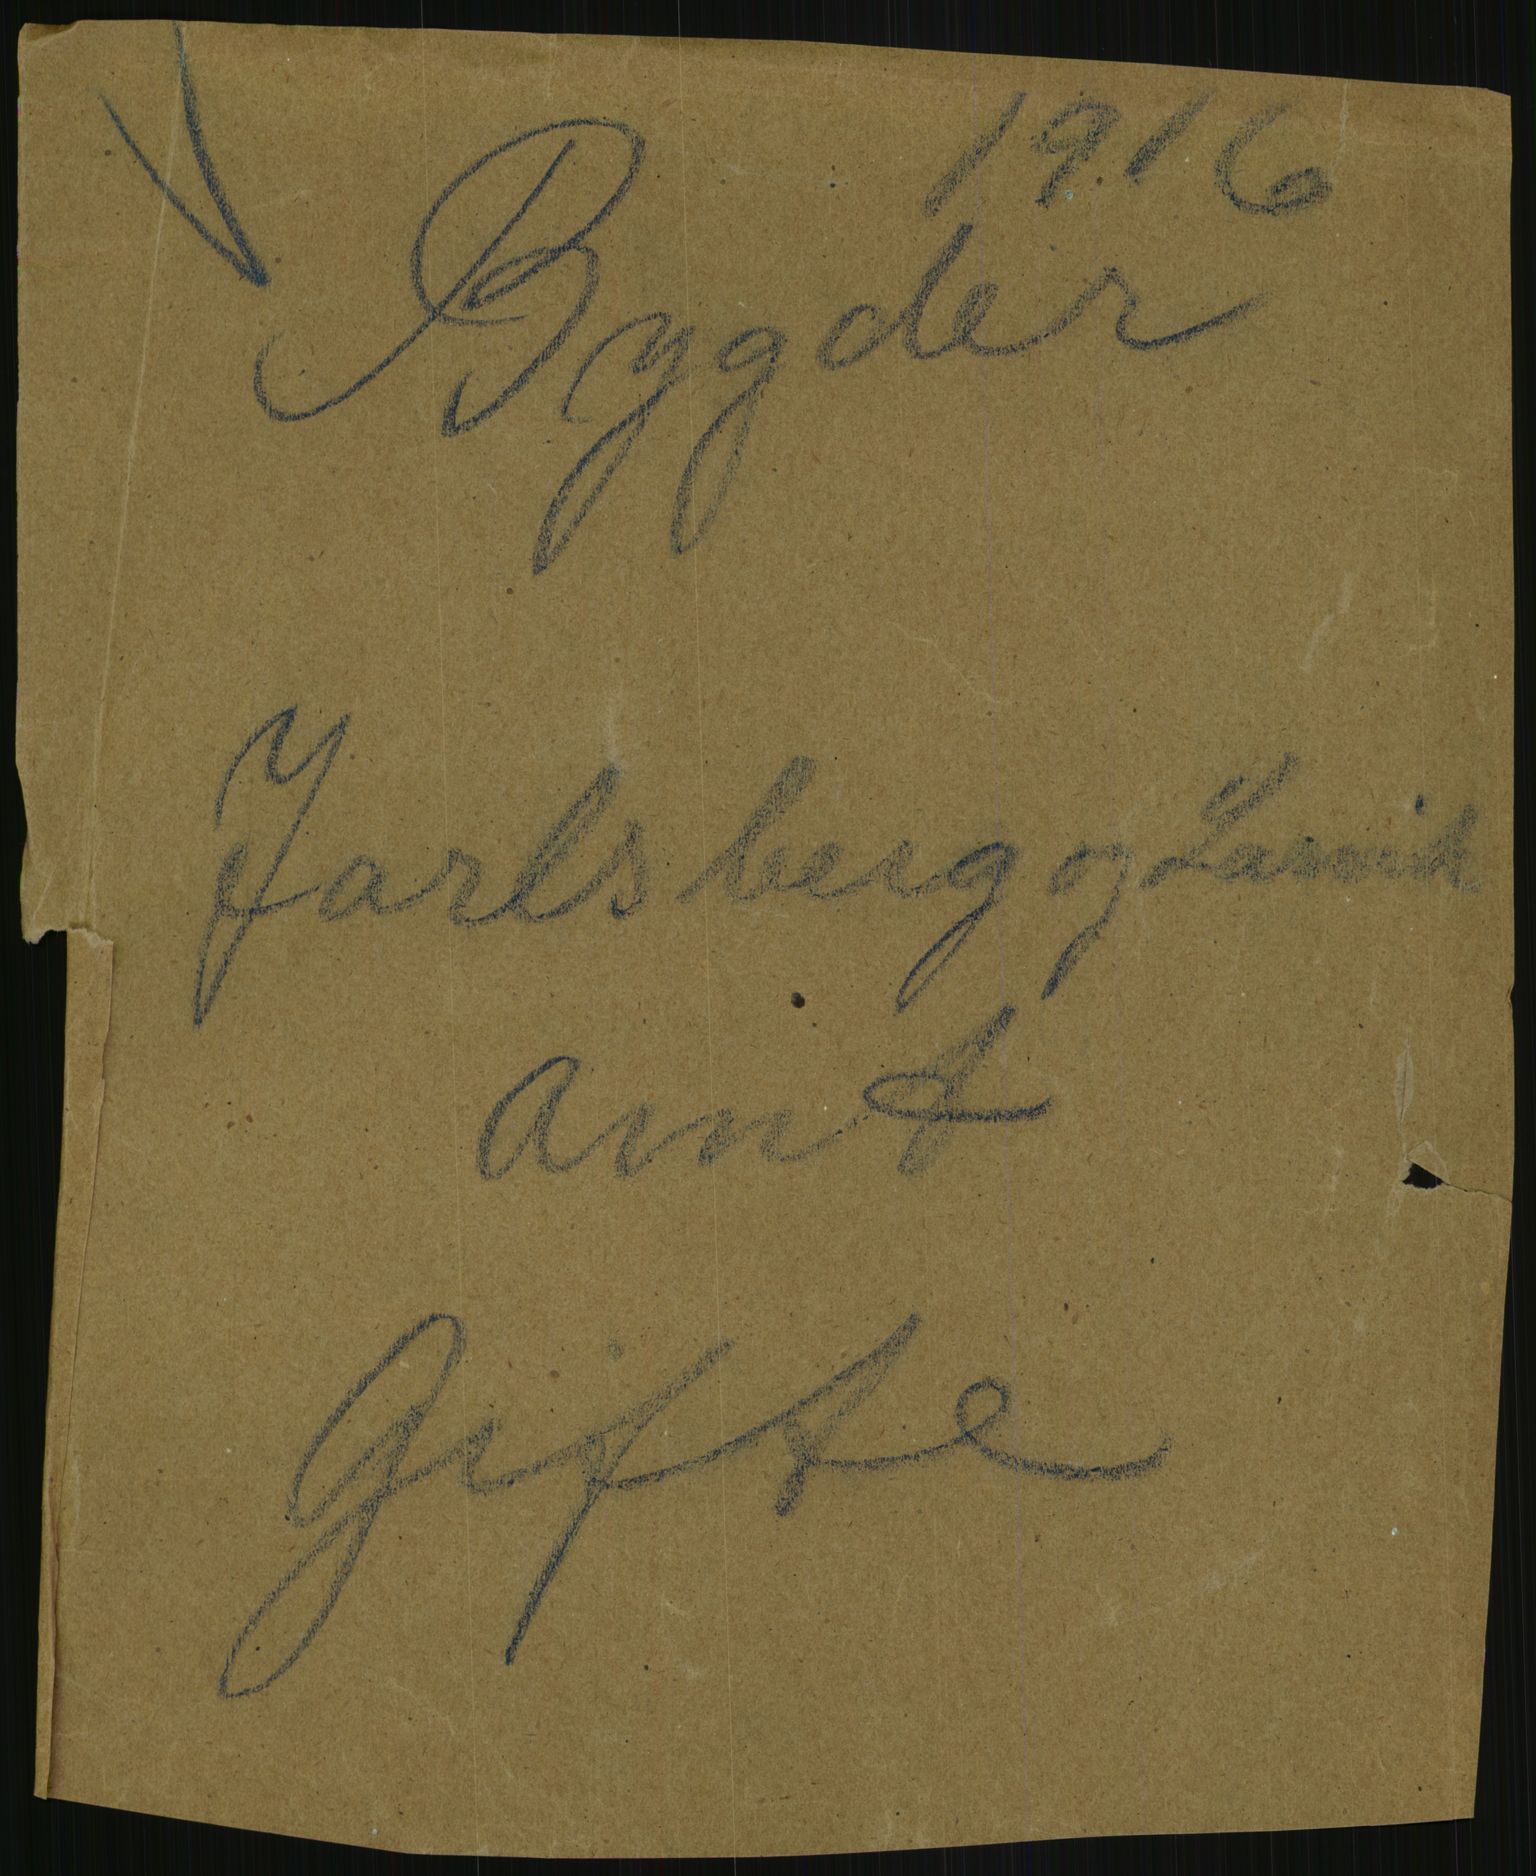 1916
Bygder
Jarlsberg og Larvik
amt
Gifte